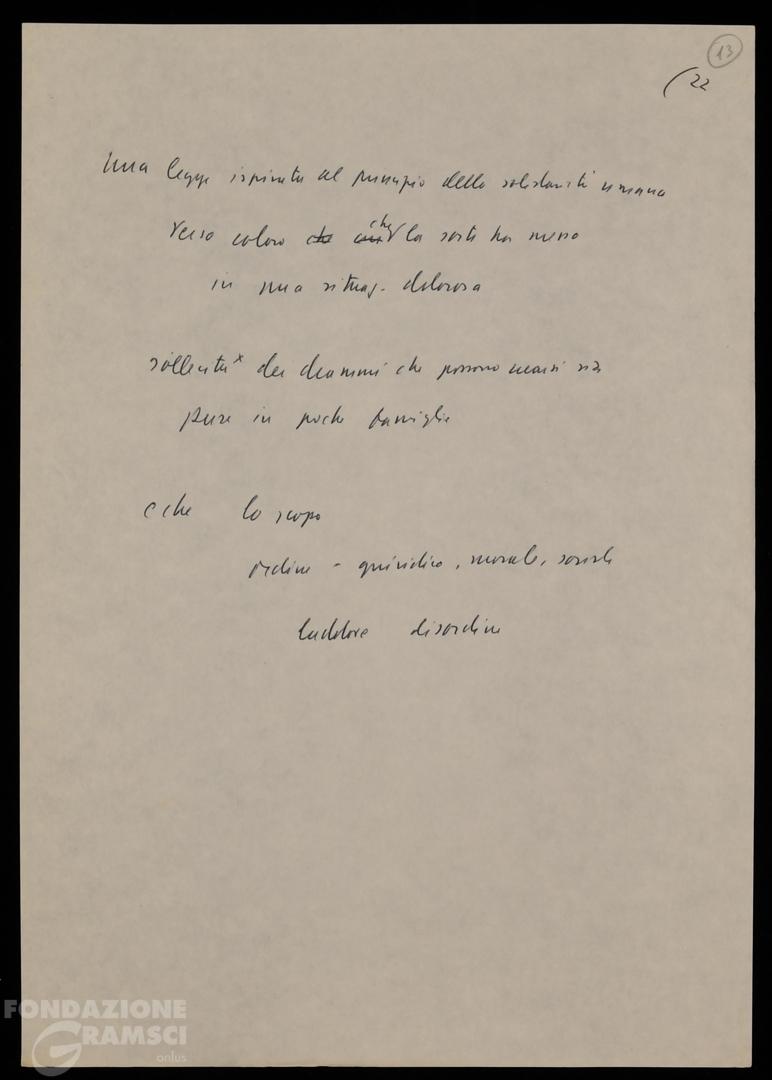 13
(22
una legge ispirata al principio della solidarietà umana
verso coloro che cui che la sorte ha messo
in una situaz. dolorosa
sollecita dei drammi che possono esserci sia
pure in poche famiglie
e che lo scopo
ordine - giuridico, morale, sociale
laddove disordine
FONDAZIONE
GRAMSCI
onlus